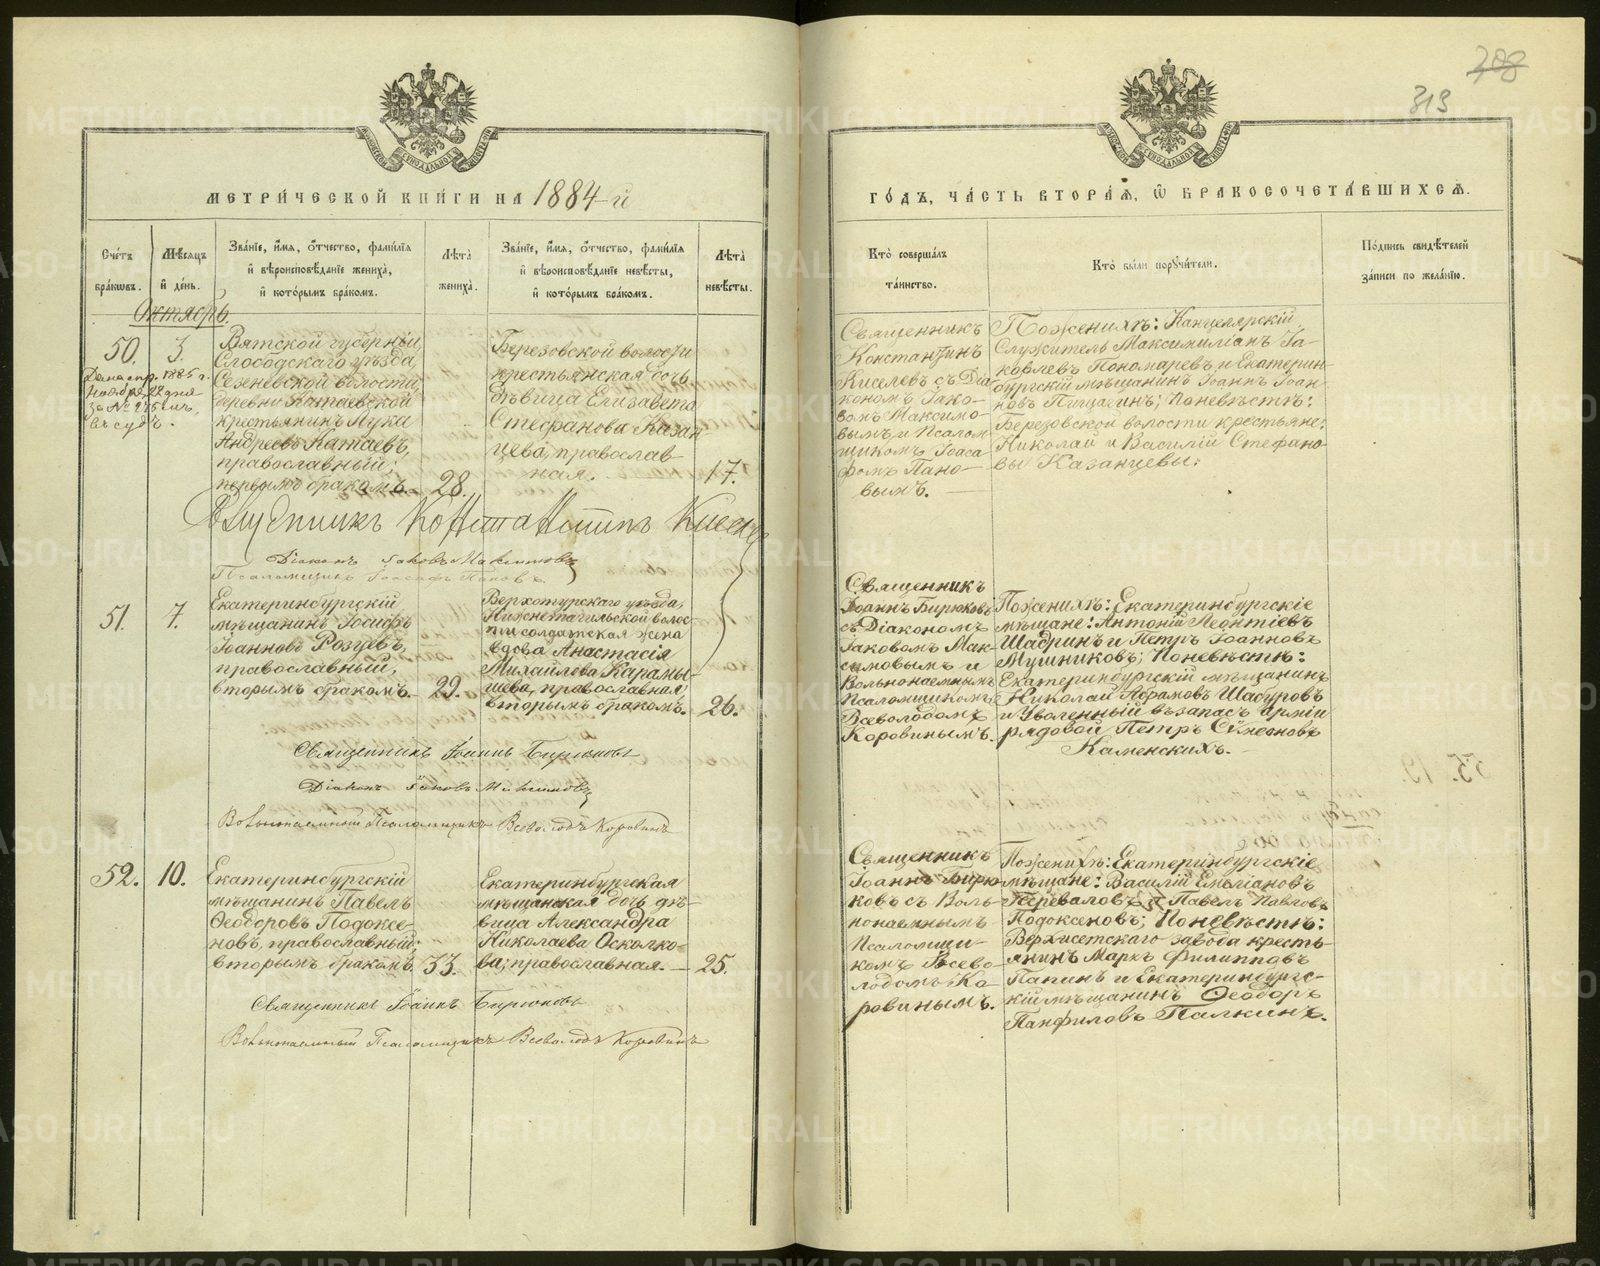 798
319
МЕТРИ́ЧЕСКОЙ КНИ́ГИ НА 1884-й
ГО́ДЪ, ЧА́СТЬ ВТОРА́Я, Ѿ БРАКОСОЧЕТА́ВШИХСЯ.
Сче́тъ бра́кѡвъ.
Мѣ́сяцъ й де́нь.
Зва́нїе, и́мя, о́тчество, фами́лїя
й вѣроисповѣ́данїе жениха̀,
й кото́рымъ бра́комъ.
Лѣ́та жениха̀.
Зва́нїе, и́мя, о́тчество, фами́лїя
й вѣроисповѣ́данїе невѣ́сты,
й кото́рымъ бра́комъ.
Лѣ́та невѣ́сты.
Кто̀ соверша́лъ
та́инство.
Кто̀ бы́ли порꙋчи́тели.
По́дпись свидѣ́телей
за́писи по жела́нїю.
Октябрь.
50.
3.
Дана спр. 1885 г.
Ноября 28 дня
за № 276 имъ,
въ судъ.
Вятской губерніи,
Слободскаго уѣзда,
Сезеневской волости,
деревни Катаевской
крестьянинъ Лука
Андреевъ Катаевъ,
православный;
первымъ бракомъ
28.
Березовской волости
крестьянская дочь
дѣвица Елизавета
Стефанова Казан-
цева, православ-
ная.
17.
Священникъ
Константинъ
Киселевъ съ Діа-
кономъ Іако-
вомъ Максимо-
вымъ и Псалом-
щикомъ Іоаса-
фомъ Пано-
вымъ.
По женихѣ: Канцелярскій
Служитель Максимиліанъ Іа-
ковлевъ Пономаревъ и Екатерин-
бургскій мѣщанинъ Іоаннъ Іоан-
новъ Пищагинъ; По невѣстѣ:
Березовской волости крестьяне:
Николай и Василій Стефано-
вы Казанцевы.
Священникъ Константинъ Киселевъ
Діаконъ Іаковъ Максимовъ
Псаломщикъ Іоасафъ Пановъ.
51.
7.
Екатеринбургскій
мѣщанинъ Іосифъ
Іоанновъ Розуевъ,
православный,
вторымъ бракомъ.
29.
Верхотурскаго уѣзда,
Нижнетагильской волос-
ти солдатская жена
вдова Анастасія
Михайлова Карамы-
шева, православная;
вторымъ бракомъ.
26.
Священникъ
Іоаннъ Бирюковъ
съ Діакономъ
Іаковомъ Мак-
симовымъ и
Вольнонаемнымъ
Псаломщикомъ
Всеволодомъ
Коровинымъ.
По женихѣ: Екатеринбургскіе
мѣщане: Антоній Леонтіевъ
Шадринъ и Петръ Іоанновъ
Мушниковъ; По невѣстѣ:
Екатеринбургскій мѣщанинъ
Николай Абрамовъ Шабуровъ
и Уволенный въ запасъ арміи
рядовой Петръ Симеоновъ
Каменскихъ.
Священникъ Іоаннъ Бирюковъ
Діаконъ Іаковъ Максимовъ
Вольнонаемный Псаломщикъ Всеволодъ Коровинъ
52.
10.
Екатеринбургскій
мѣщанинъ Павелъ
Ѳеодоровъ Подоксе-
новъ, православный;
вторымъ бракомъ.
33.
Екатеринбургская
мѣщанская дочь дѣ-
вица Александра
Николаева Осколко-
ва; православная.
25.
Священникъ
Іоаннъ Бирю-
ковъ съ Воль-
нонаемнымъ
Псаломщи-
комъ Всево-
лодомъ Ко-
ровинымъ.
По женихѣ: Екатеринбургскіе
мѣщане: Василій Емеліановъ
Переваловъ и Павелъ Павловъ
Подоксеновъ; По невѣстѣ:
Верхисетскаго завода кресть-
янинъ Маркъ Филипповъ
Папинъ и Екатеринбургс-
кій мѣщанинъ Ѳеодоръ
Панфиловъ Палкинъ.
Священникъ Іоаннъ Бирюковъ
Вольнонаемный Псаломщикъ Всеволодъ Коровинъ
METRIKI.GASO-URAL.RU